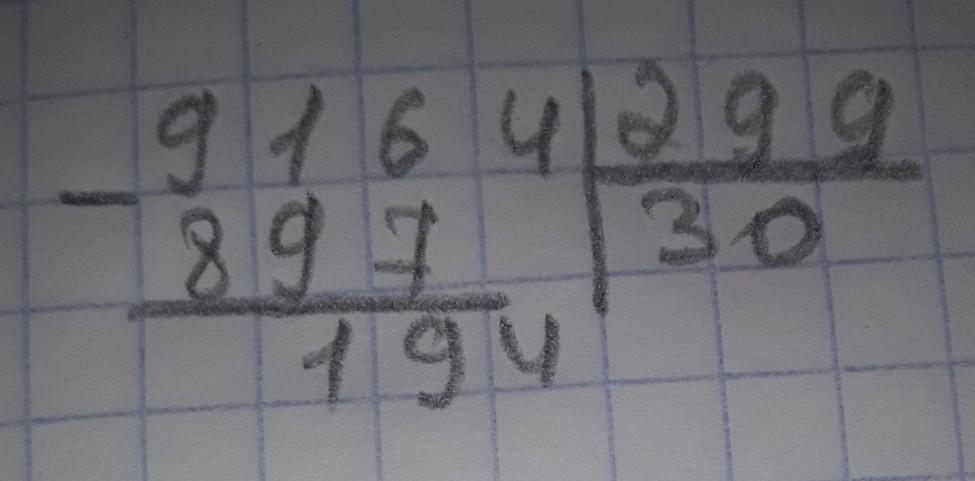 9164|299
- 897 |30
194